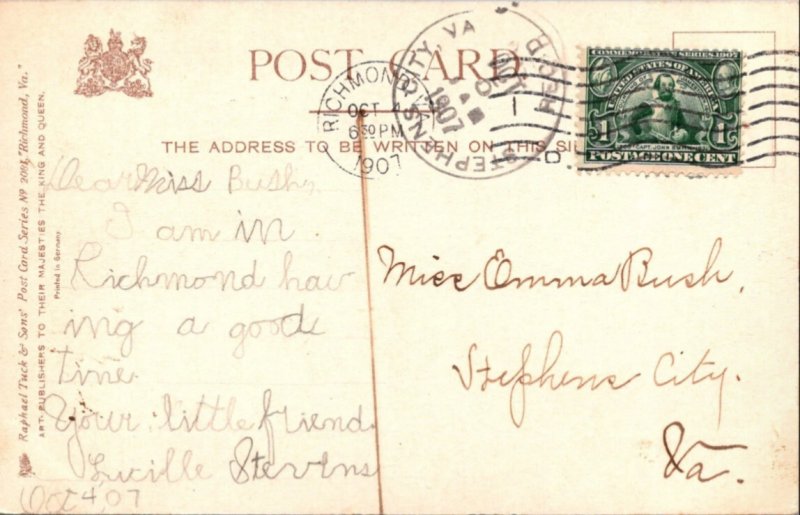 POST CARD.
THE ADDRESS TO BE WRITTEN ON THIS SI
RICHMOND, VA.
OCT 4
6 30 PM
1907
STEPHENS CITY VA
OCT
1907
REC'D.
COMMEMORATIVE SERIES 1907
UNITED STATES OF AMERICA
1 1
POSTAGE ONE CENT
Raphael Tuck & Sons' Post Card Series Nº 2064, "Richmond, Va."
ART PUBLISHERS TO THEIR MAJESTIES THE KING AND QUEEN.
Printed in Germany
Dear Miss Bush,
I am in
Richmond hav
ing a good
time.
Your little friend
Lucille Stevens
Oct 4, 07
Miss Emma Bush,
Stephens City.
Va.